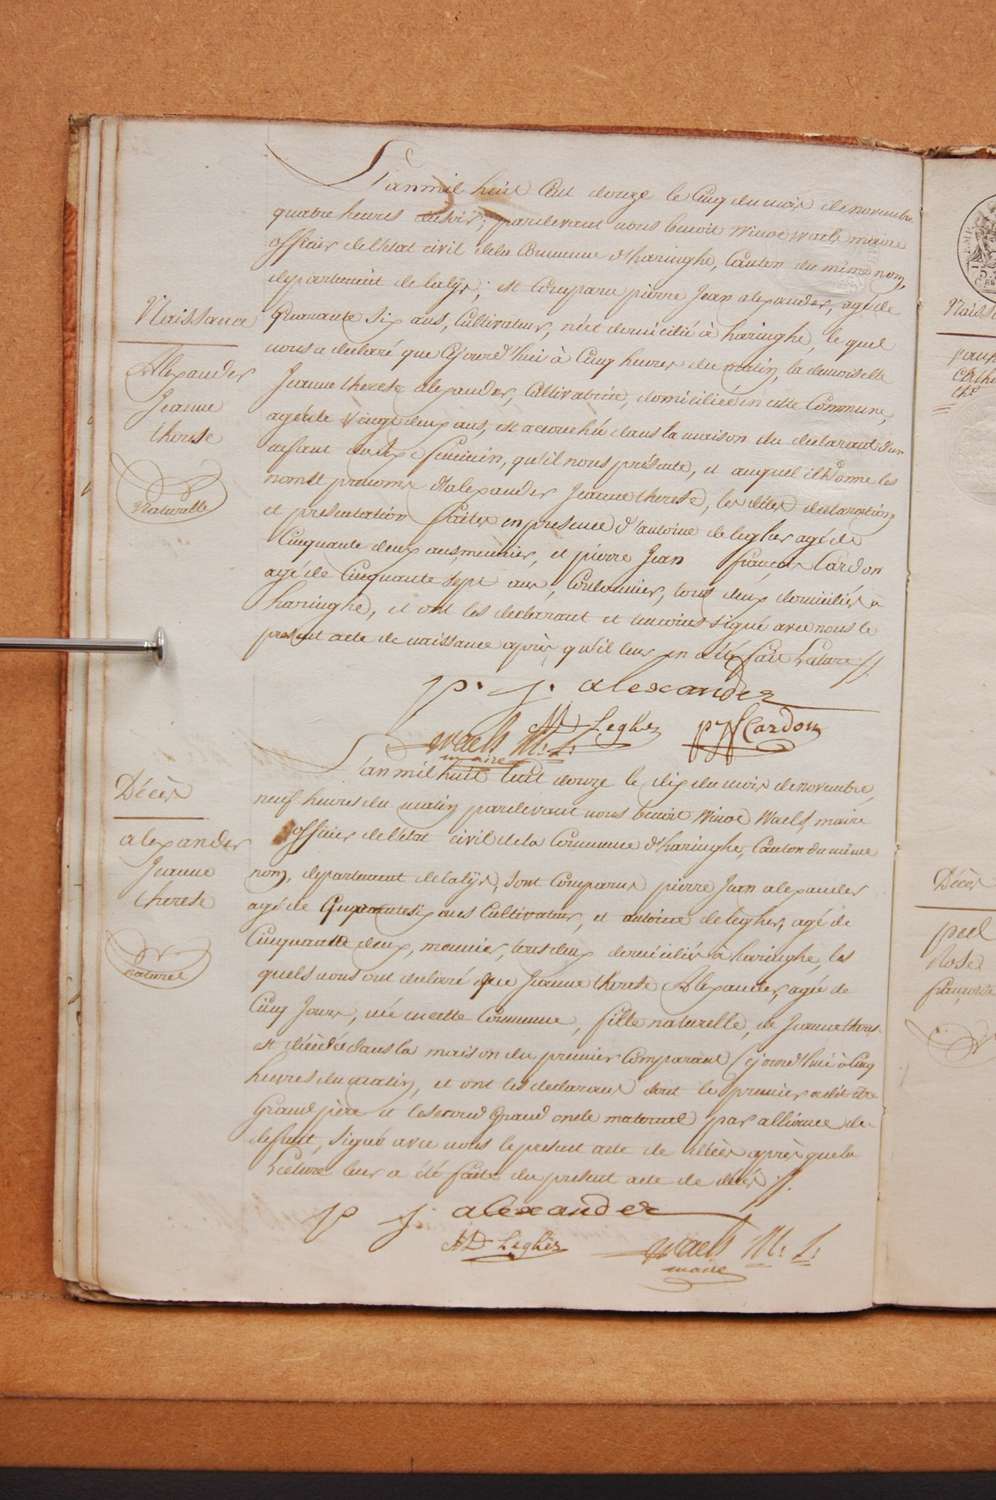 Naissance
Alexander
Jeanne
therese
Naturelle
L'an mil huit Cent douze le Cinq du mois de novembre
quatre heures du soir, pardevant nous benoit Winoc Waels maire
officier de l'état civil de la Commune d'haringhe, Canton du même nom,
département de la lys, est Comparu pierre Jean alexander, agé de
Quarante Six ans, Cultivateur, né et domicilié à haringhe, le quel
nous a declaré que Cejourd'hui à Cinq heures du matin, la demoiselle
Jeanne therese alexander, Cultivatrice, domiciliée en cette Commune,
agée de vingt deux ans, est accouchée dans la maison du declarant d'un
enfant du sexe feminin, qu'il nous présente, et auquel il donne les
nom et prenoms d'alexander Jeanne therese, les dites declaration
et presentation faites en presence d'antoine de legher agé de
Cinquante deux ans, meunier, et pierre Jean françois Cardon
agé de Cinquante Sept ans, tous deux domiciliés à
haringhe, et ont les declarant et temoins signé avec nous le
présent acte de naissance après qu'il leur en a été fait Lecture //.
p. j. alexander
AD Leghe p j f Cardon
Waels M: L:
maire
Décès
alexander
Jeanne
therese
naturel
L'an mil huit Cent douze le dix du mois de novembre,
neuf heures du matin pardevant nous benoit Winoc Waels, maire
officier de l'état civil de la Commune d'haringhe, Canton du même
nom, département de la lys, sont Comparus pierre Jean alexander
agé de Quarante Six ans Cultivateur, et antoine de legher, agé de
Cinquante deux, meunier, tous deux domiciliés à haringhe, les
quels nous ont declaré que Jeanne therese Alexander, agée de
Cinq Jours, née en cette Commune, fille naturelle, de Jeanne theres.
est décédée dans la maison du premier Comparant Cejourd'hui à Cinq
heures du matin, et ont les declarans dont le premier a dit être
Grand père et le second Grand oncle maternel par alliance de
defunt, signé avec nous le présent acte de décès après que la
Lecture leur a été faite du présent acte de décès //.
p j alexander
AD Leghe Waels M: L:
maire
Naiss
Décès
peel
Rose
françoise